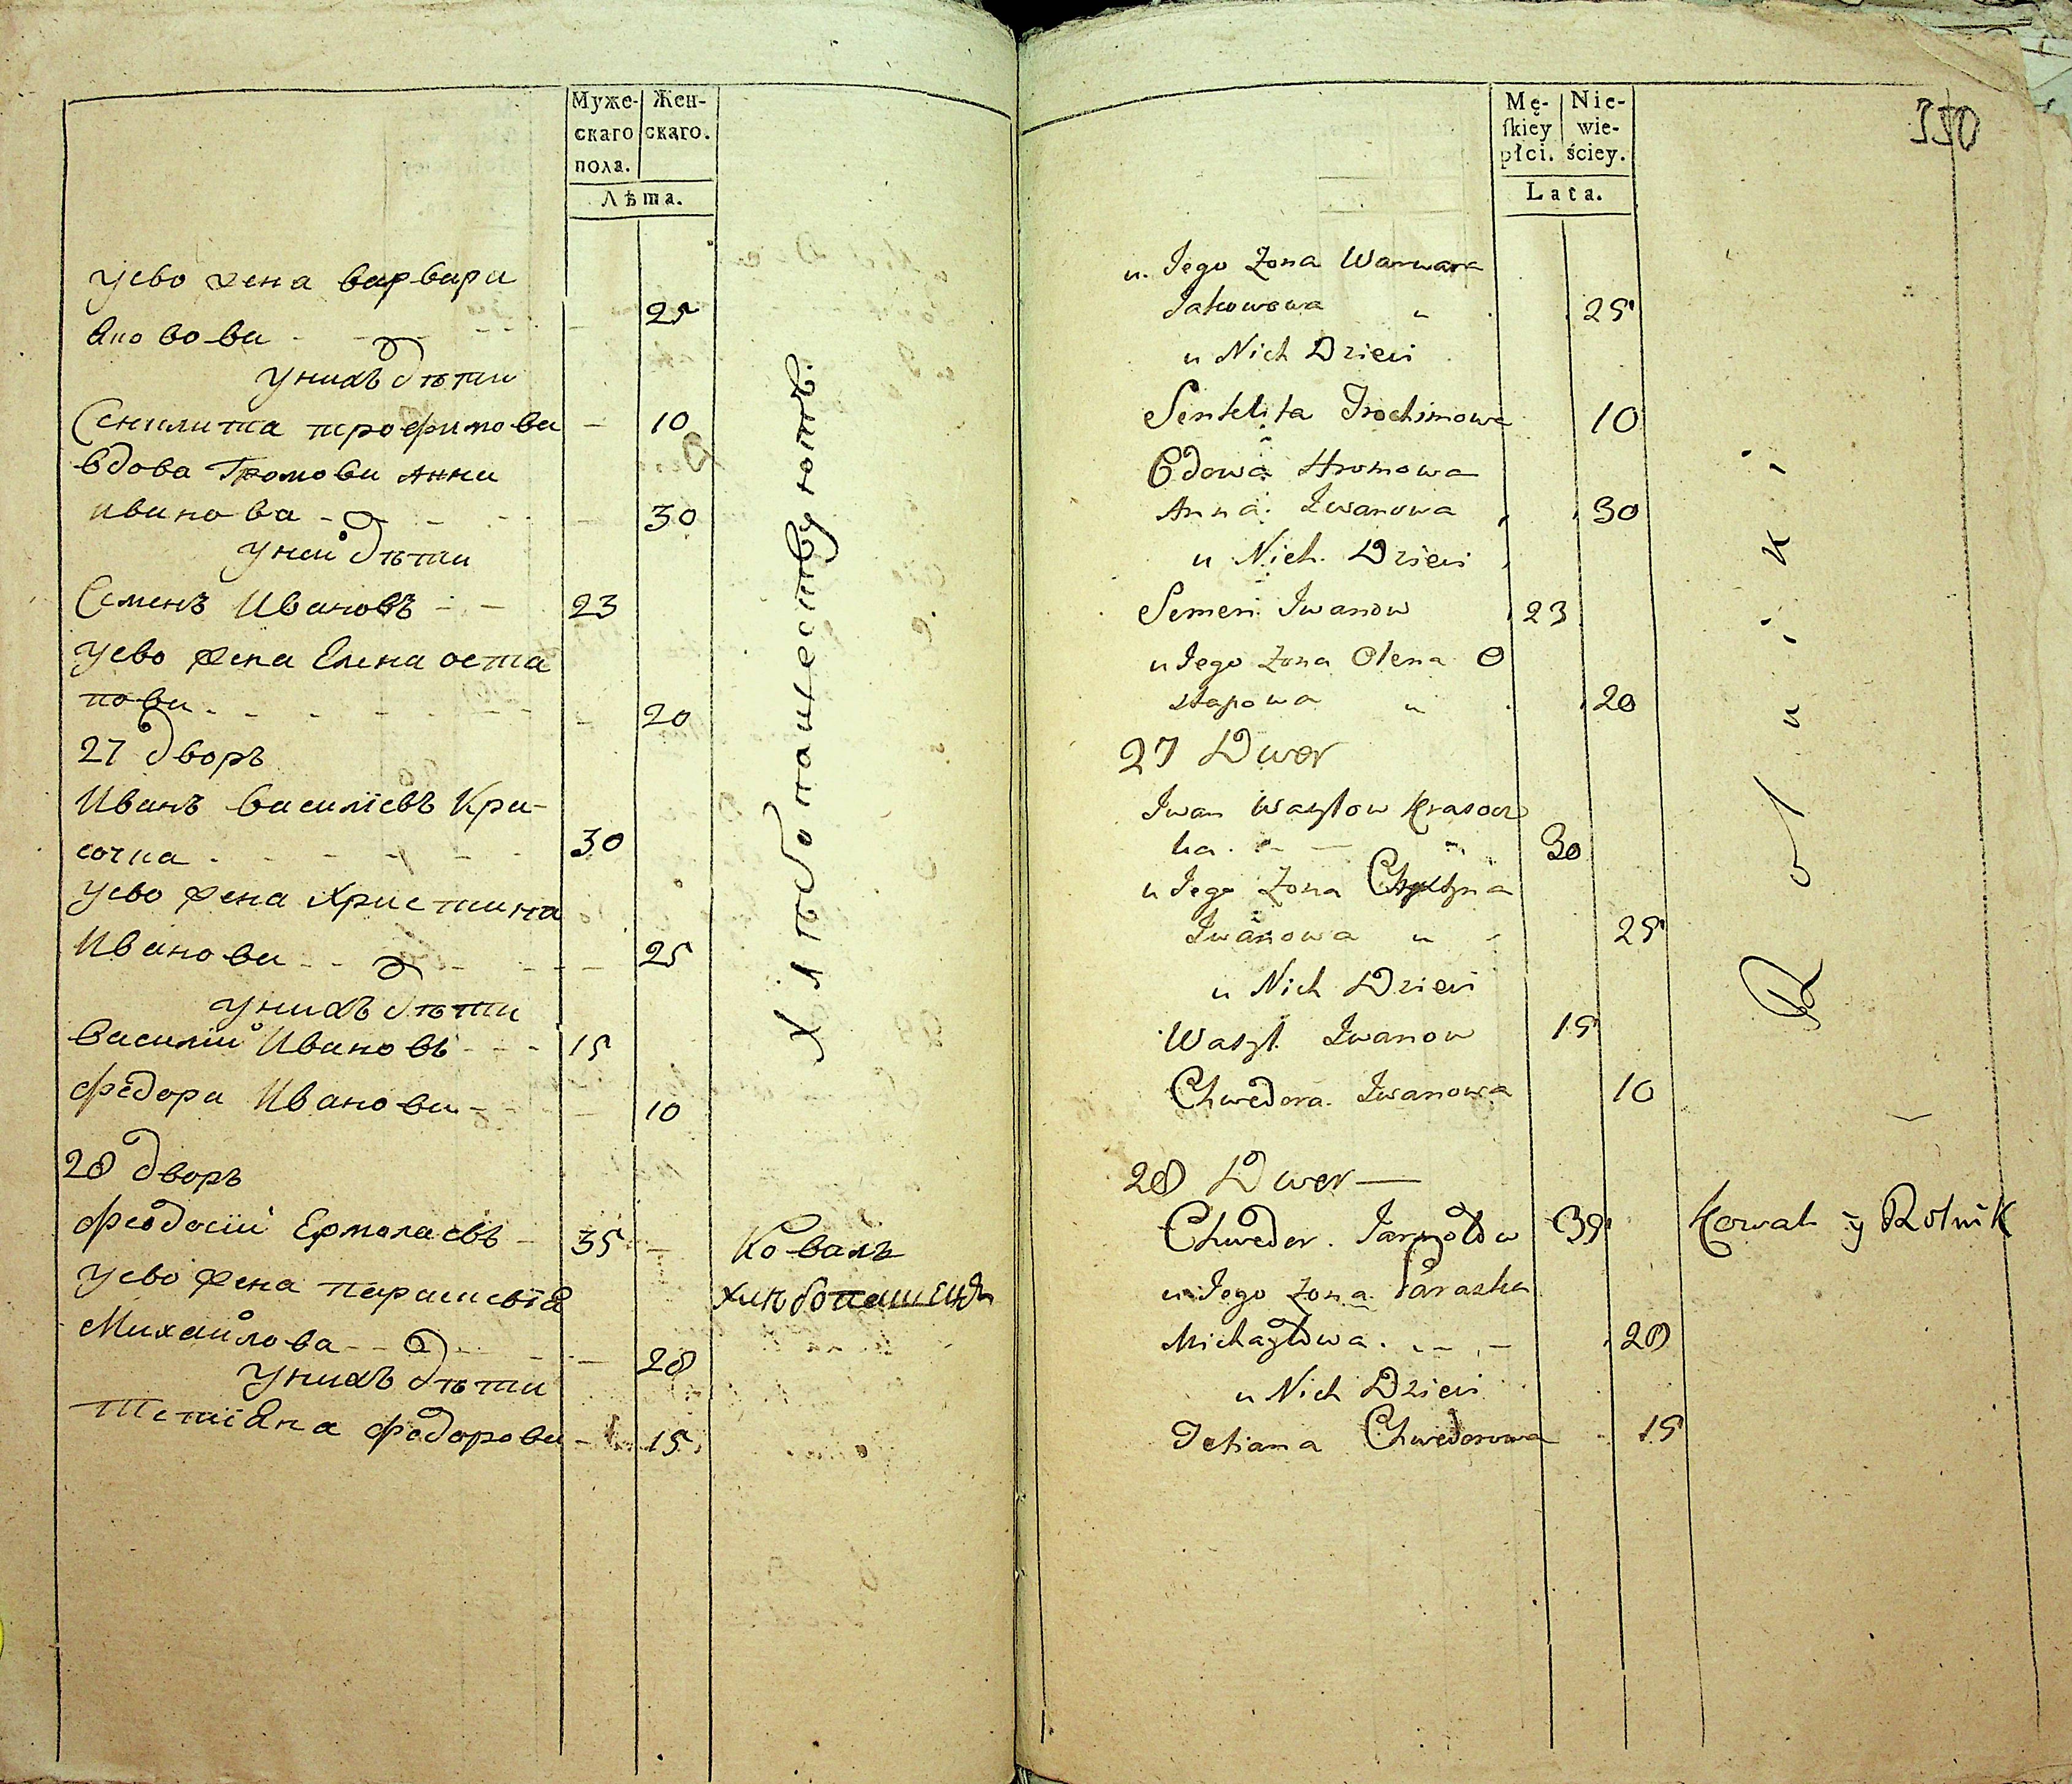 Муже-
скаго
пола.
Жен-
скаго.
Лѣта.
у ево жена варвара
Яковова 25
у нихъ дѣти
Сенклита трофимова 10
вдова Громова Анна
иванова 30
у ней дѣти
Семенъ Ивановъ 23
у ево жена Елена оста
пова 20
27 дворъ
Иванъ василіевъ Кра-
сочка 30
у ево жена Христина
Иванова 25
у нихъ дѣти
василий Ивановъ 15
федора Иванова 10
28 дворъ
феодосій Ермолаевъ 35 Коваль
у ево жена парасковія
Михайлова 28
у нихъ дѣти
Тетіяна федорова 15
Хлѣбопашествуютъ.
Mę-
skiey
płci.
Nie-
wie-
ściey.
Lata.
350
u Jego Zona Warwara
Jakowowa 25
u Nich Dzieci
Senklita Trochimowa 10
Wdowa Hromowa
Anna Iwanowa 30
u Nich Dzieci
Semen Iwanow 23
u Jego Zona Olena O
stapowa 20
27 Dwor
Iwan Wasylow Krasocz
ka 30
u Jego Zona Chrystyna
Iwanowa 25
u Nich Dzieci
Wasyl Iwanow 15
Chwedora Iwanowa 10
28 Dwor
Chwedor Jarmołow 35 Kowal y Rolnik
u Jego Zona Paraska
Michayłowa 28
u Nich Dzieci
Tetiana Chwedorowa 15
Rolniki